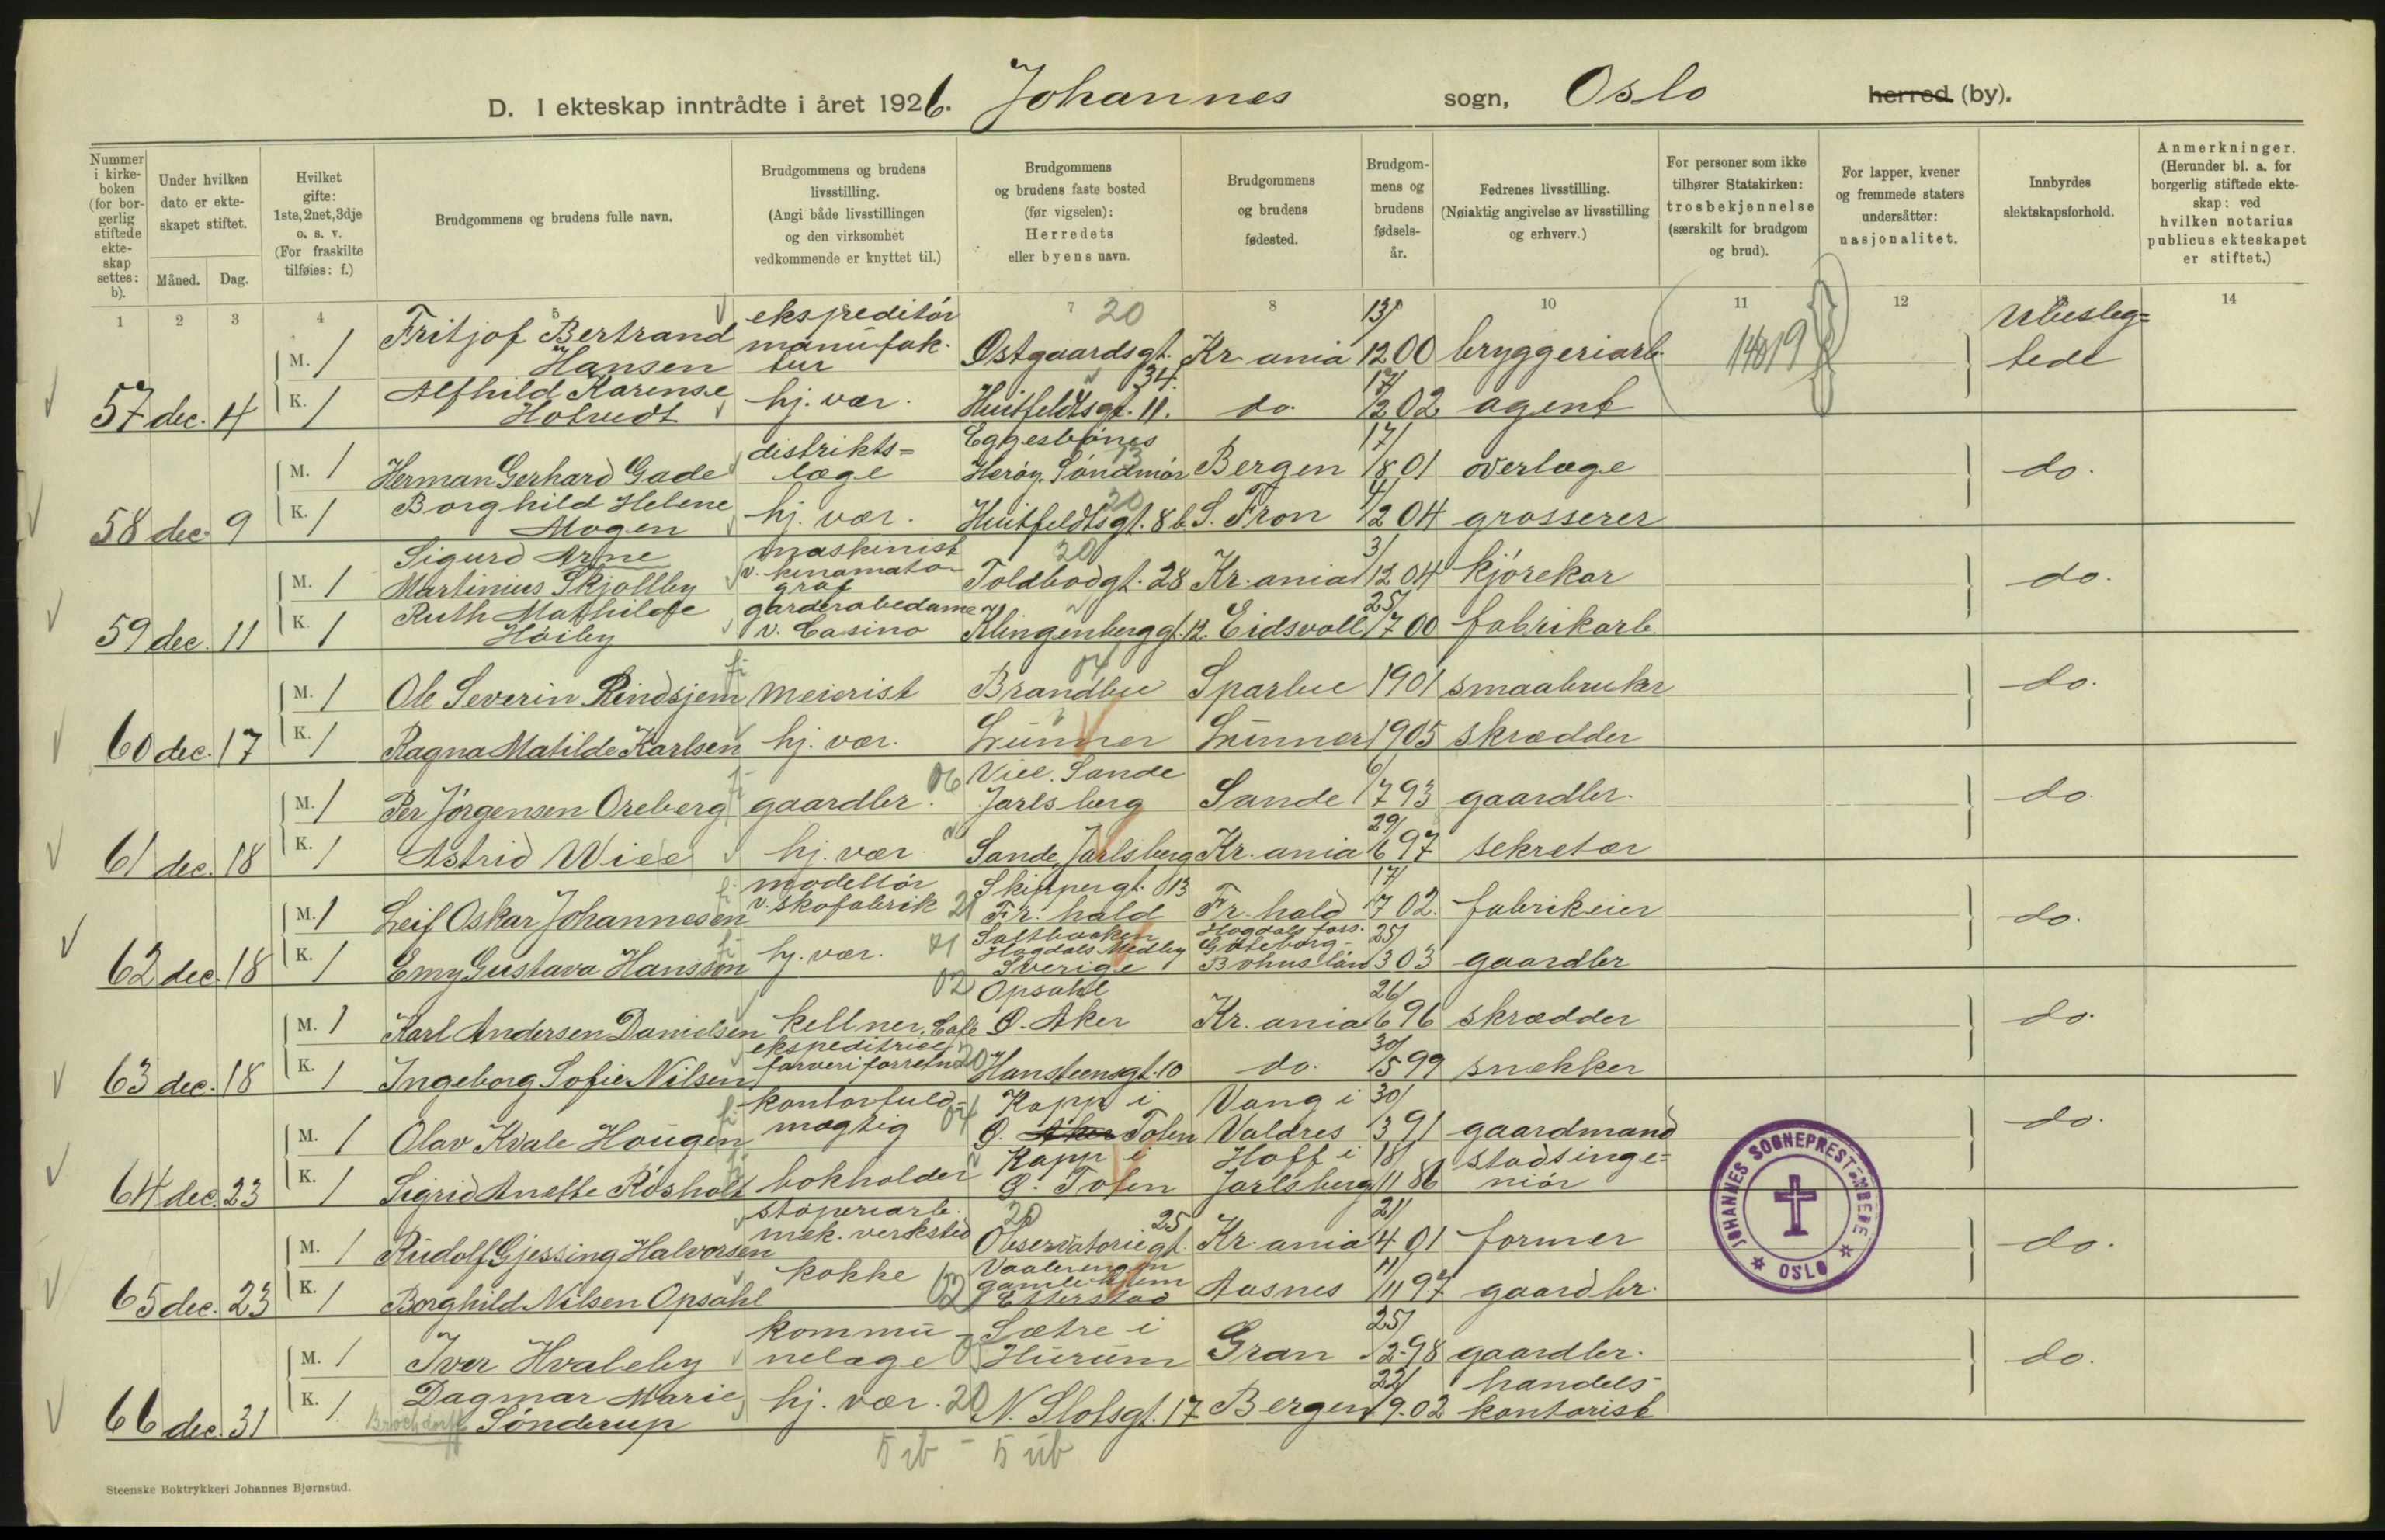 D. I ekteskap inntrådte i året 1926. Johannes sogn, Oslo herred (by).
Nummer i kirkeboken (for borgerlig stiftede ekteskap settes: b).
Under hvilken dato er ekteskapet stiftet.
Måned. Dag.
Hvilket gifte: 1ste, 2net, 3dje o. s. v. (For fraskilte tilføies: f.)
Brudgommens og brudens fulle navn.
Brudgommens og brudens livsstilling. (Angi både livsstillingen og den virksomhet vedkommende er knyttet til.)
Brudgommens og brudens faste bosted (før vigselen): Herredets eller byens navn.
Brudgommens og brudens fødested.
Brudgommens og brudens fødselsår.
Fedrenes livsstilling. (Nøiaktig angivelse av livsstilling og erhverv.)
For personer som ikke tilhører Statskirken: trosbekjennelse (særskilt for brudgom og brud).
For lapper, kvener og fremmede staters undersåtter: nasjonalitet.
Innbyrdes slektskapsforhold.
Anmerkninger. (Herunder bl. a. for borgerlig stiftede ekteskap: ved hvilken notarius publicus ekteskapet er stiftet.)
1 2 3 4 5 7 8 10 11 12 14
M. 1 Fritjof Bertrand Hansen ekspreditør manufaktur Østgaardsgt. 34. 20 Kr.ania 13/12 00 bryggeriarb. Ubeslegtede
57 dec. 4 K. 1 Alfhild Karense Hotvedt hj. vær. Huitfeldtsgt. 11. do. 17/12 02 agent
M. 1 Herman Gerhard Gade distriktslæge Eggesbønes Herøy, Søndmør Bergen 17/8 01 overlæge do.
58 dec. 9 K. 1 Borghild Helene Mogen hj. vær. Huitfeldtsgt. 8 b 20 S. Fron 4/2 04 grosserer
M. 1 Sigurd Arne Martinius Skjollby maskinist v. kinamatograf Toldbodgt. 28 20 Kr.ania 3/12 04 kjørekar do.
59 dec. 11 K. 1 Ruth Mathilde Høiby garderobedame v. Casino Klingenberggt. 12. Eidsvoll 25/7 00 fabrikarb.
M. 1 Ole Severin Rindsjem meierist Brandbu 04 Sparbu 1901 smaabruker do.
60 dec. 17 K. 1 Ragna Matilde Karlsen hj. vær. Lunner Lunner 1905 skrædder
M. 1 Per Jørgensen Oreberg gaardbr. 06 Viee. Sande Jarlsberg Sande 6/7 93 gaardbr. do.
61 dec. 18 K. 1 Astrid Wiee hj. vær. Sande, Jarlsberg Kr.ania 29/6 97 sekretær
M. 1 Leif Oskar Johannesen modellør v. skofabrik Skippergt. 13 Fr. hald Fr. hald 17/7 02. fabrikeier do.
62 dec. 18 K. 1 Emy Gustava Hansson hj. vær. Saltbacken Hogdals Medby Sverige Hogdals fors. Gøteborg- Bohuslän 25/3 03 gaardbr
M. 1 Karl Andersen Danielsen kellner, Cafe 02 Opsahl Ø. Aker Kr.ania 26/6 96 skrædder do.
63 dec. 18 K. 1 Ingeborg Sofie Nilsen ekspeditrice farveriforretn. 20 Hansteensgt. 10 do. 30/5 99 snekker
M. 1 Olav Kvale Hougen kontorfuldmægtig 04 Kapp i Ø. Aker Toten Vang i Valdres 30/3 91 gaardmand do.
64 dec. 23 K. 1 Sigrid Anette Røsholt bokholder Kapp i Ø. Toten Hoff i Jarlsberg 18/11 86 stadsingeniør
M. 1 Rudolf Gjessing Halvorsen støperiarb. mek. verksted 20 Observatoriegt. 25 Kr.ania 21/4 01 former do.
65 dec. 23 K. 1 Borghild Nilsen Opsahl kokke 02 Vaalerengen gamle hjem Etterstad Aasnes 11/11 97 gaardbr.
M. 1 Iver Hvaleby kommunelæge Sætre i Hurum Gran 25/2-98 gaardbr. do.
66 dec. 31 K. 1 Dagmar Marie Brochdorff Sønderup hj. vær. 20 N. Slotsgt. 17 Bergen 22/9-02 handelskontorist
JOHANNES SOGNEPRESTEMBEDE OSLO
Steenske Boktrykkeri Johannes Bjørnstad.